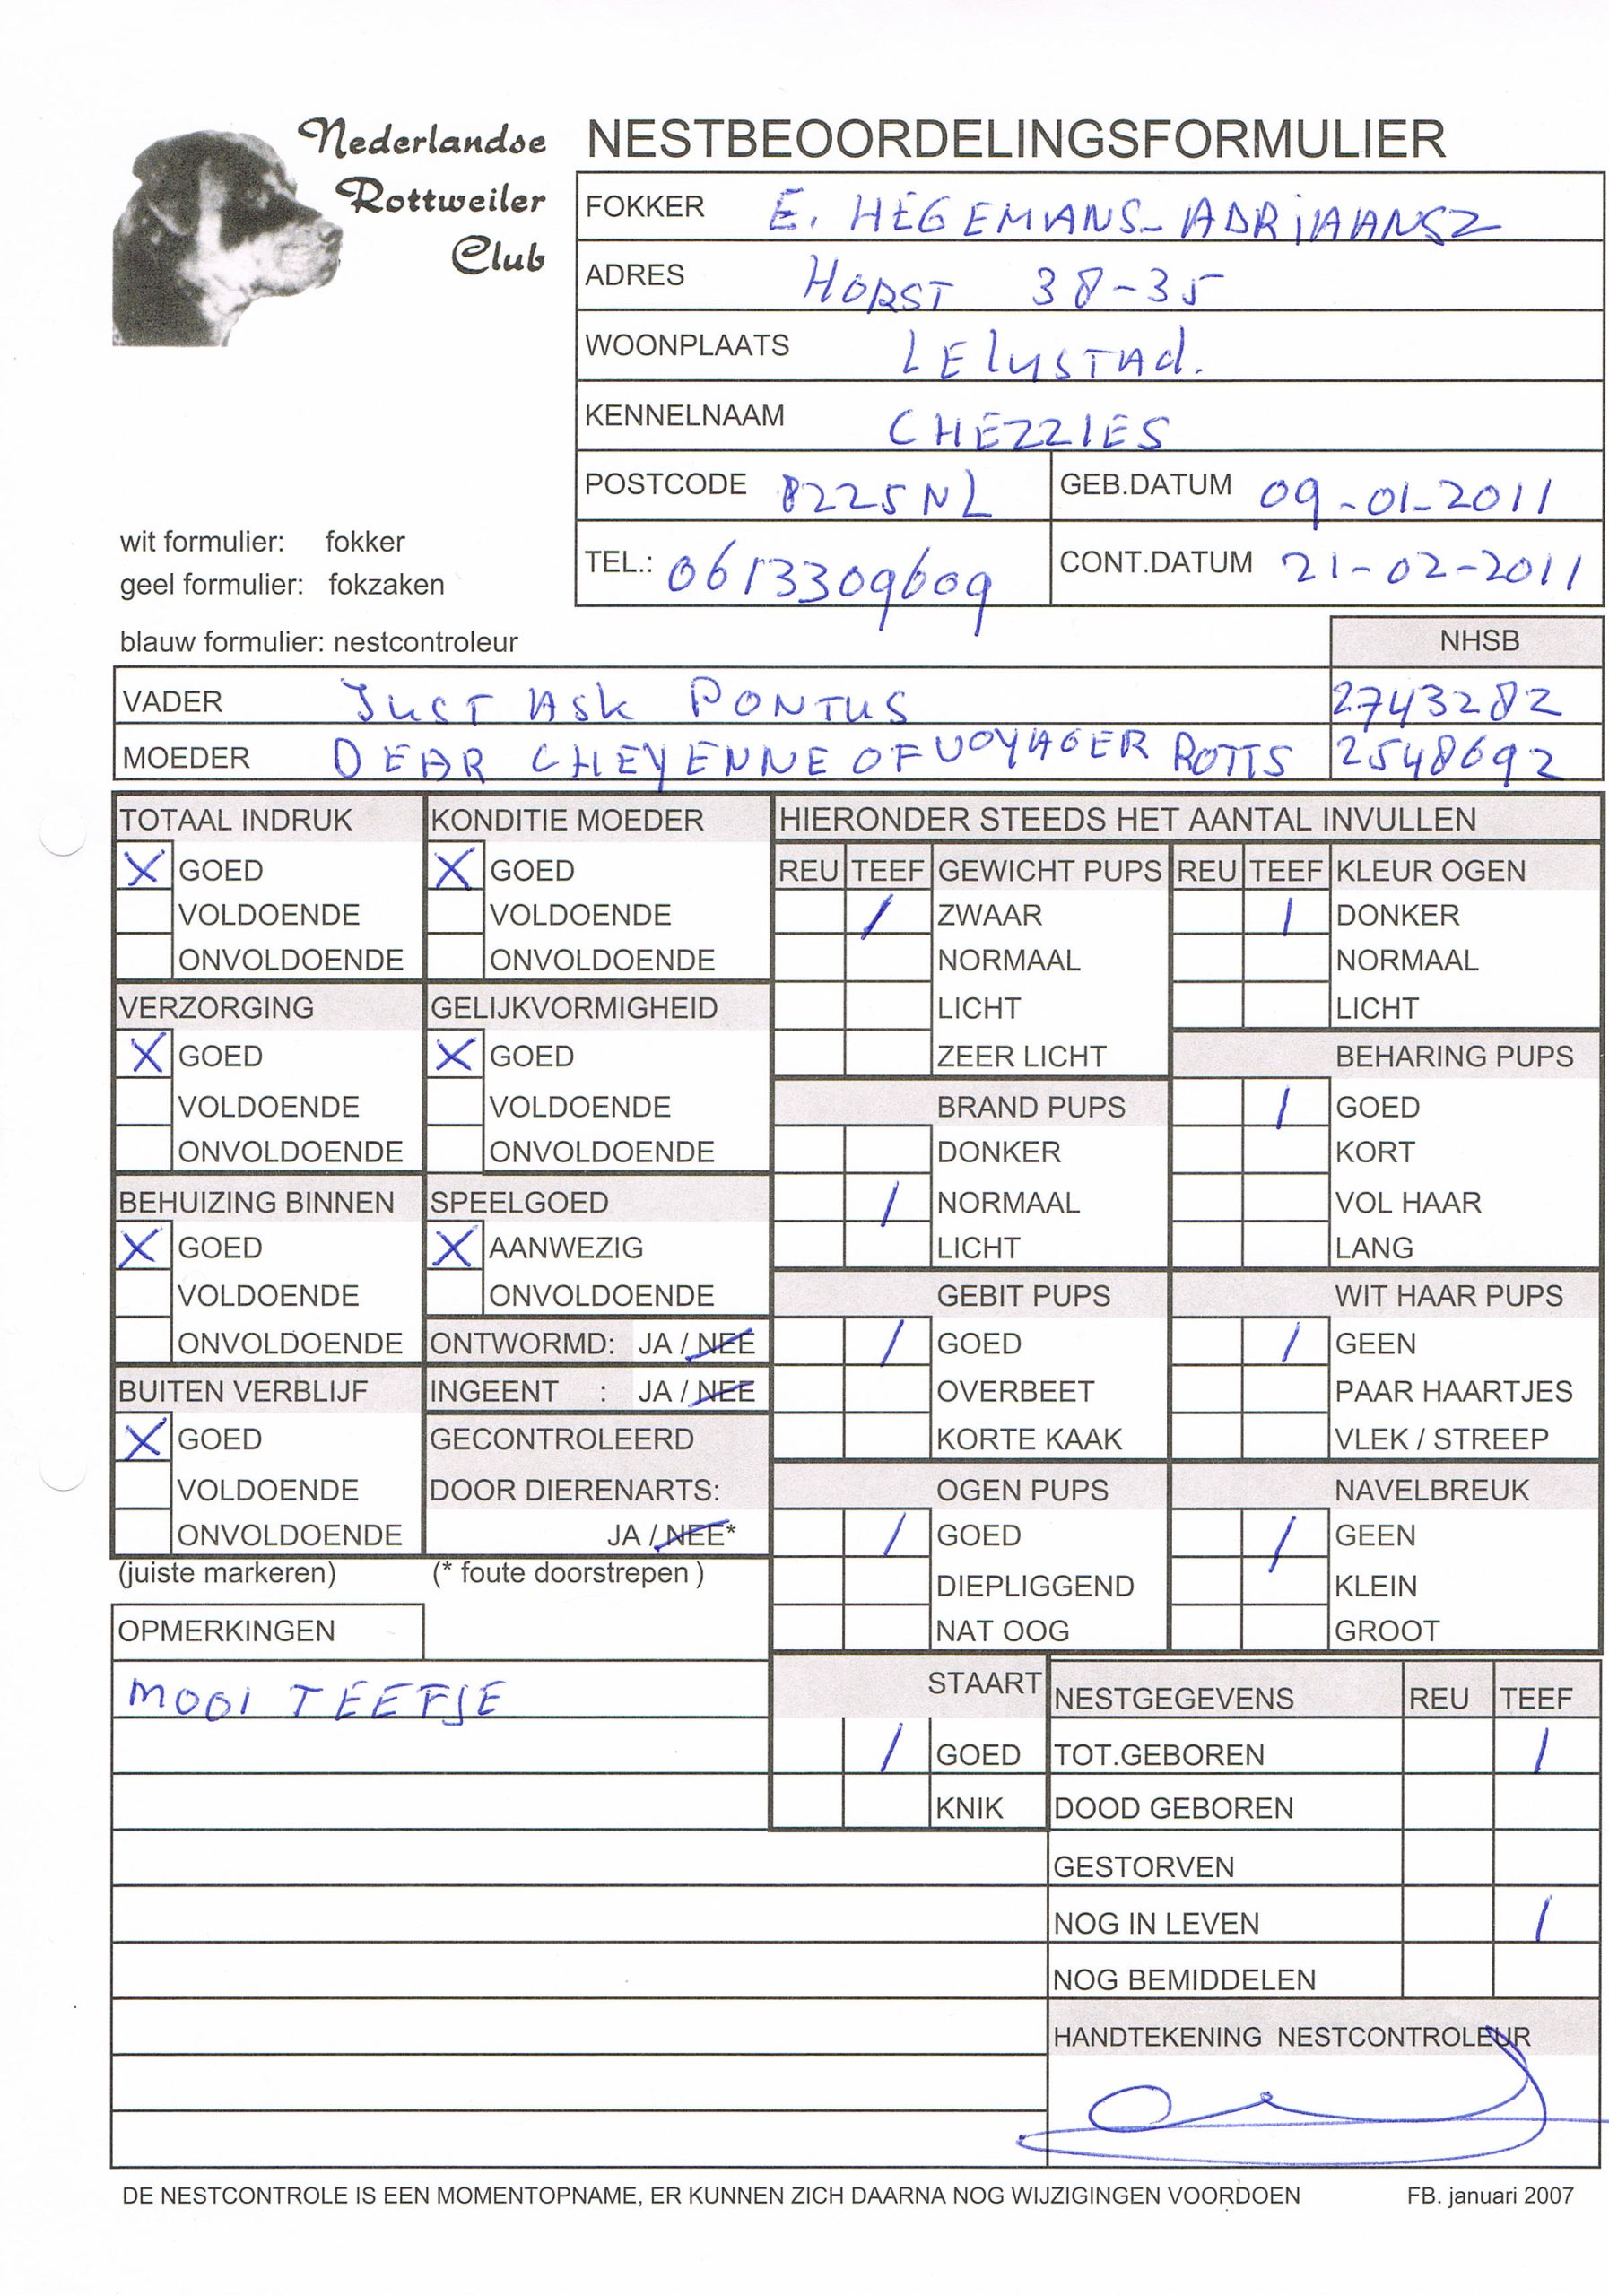 Nederlandse
Rottweiler
Club
NESTBEOORDELINGSFORMULIER
FOKKER E. HEGEMANS-ADRIAANSZ
ADRES HORST 38-35
WOONPLAATS LELYSTAD.
KENNELNAAM CHEZZIES
POSTCODE 8225NL GEB.DATUM 09-01-2011
wit formulier: fokker
TEL.: 0613309609 CONT.DATUM 21-02-2011
geel formulier: fokzaken
blauw formulier: nestcontroleur NHSB
VADER JUST ASK PONTUS 2743282
MOEDER DEAR CHEYENNE OF VOYAGER ROTTS 2548692
TOTAAL INDRUK KONDITIE MOEDER HIERONDER STEEDS HET AANTAL INVULLEN
X GOED X GOED REU TEEF GEWICHT PUPS REU TEEF KLEUR OGEN
VOLDOENDE VOLDOENDE / ZWAAR / DONKER
ONVOLDOENDE ONVOLDOENDE NORMAAL NORMAAL
VERZORGING GELIJKVORMIGHEID LICHT LICHT
X GOED X GOED ZEER LICHT BEHARING PUPS
VOLDOENDE VOLDOENDE BRAND PUPS / GOED
ONVOLDOENDE ONVOLDOENDE DONKER KORT
BEHUIZING BINNEN SPEELGOED / NORMAAL VOL HAAR
X GOED X AANWEZIG LICHT LANG
VOLDOENDE ONVOLDOENDE GEBIT PUPS WIT HAAR PUPS
ONVOLDOENDE ONTWORMD: JA / NEE / GOED / GEEN
BUITEN VERBLIJF INGEENT : JA / NEE OVERBEET PAAR HAARTJES
X GOED GECONTROLEERD KORTE KAAK VLEK / STREEP
VOLDOENDE DOOR DIERENARTS: OGEN PUPS NAVELBREUK
ONVOLDOENDE JA / NEE* / GOED / GEEN
(juiste markeren) (* foute doorstrepen ) DIEPLIGGEND KLEIN
OPMERKINGEN NAT OOG GROOT
MOOI TEEFJE STAART NESTGEGEVENS REU TEEF
/ GOED TOT.GEBOREN /
KNIK DOOD GEBOREN
GESTORVEN
NOG IN LEVEN /
NOG BEMIDDELEN
HANDTEKENING NESTCONTROLEUR
DE NESTCONTROLE IS EEN MOMENTOPNAME, ER KUNNEN ZICH DAARNA NOG WIJZIGINGEN VOORDOEN FB. januari 2007